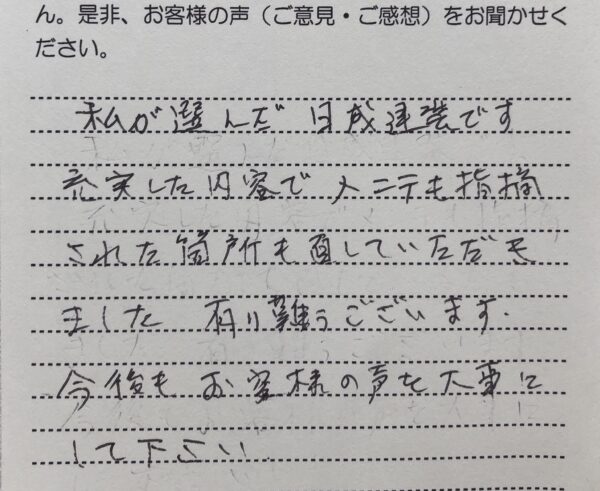 ん。是非、お客様の声（ご意見・ご感想）をお聞かせく
ださい。
私が選んだ日成建装です
充実した内容でメニテも指摘
された箇所も直していただき
ました 有り難うございます.
今後もお客様の声を大事に
して下さい